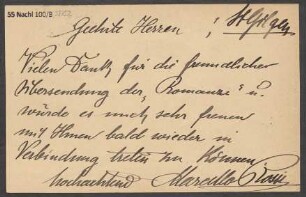 55 Nachl 100/B
Geehrte Herren! St Gilgen
Vielen Dank für die freundliche
Übersendung der „Romanze" u.
würde es mich sehr freuen
mit Ihnen bald wieder in
Verbindung treten zu können
hochachtend Marcello